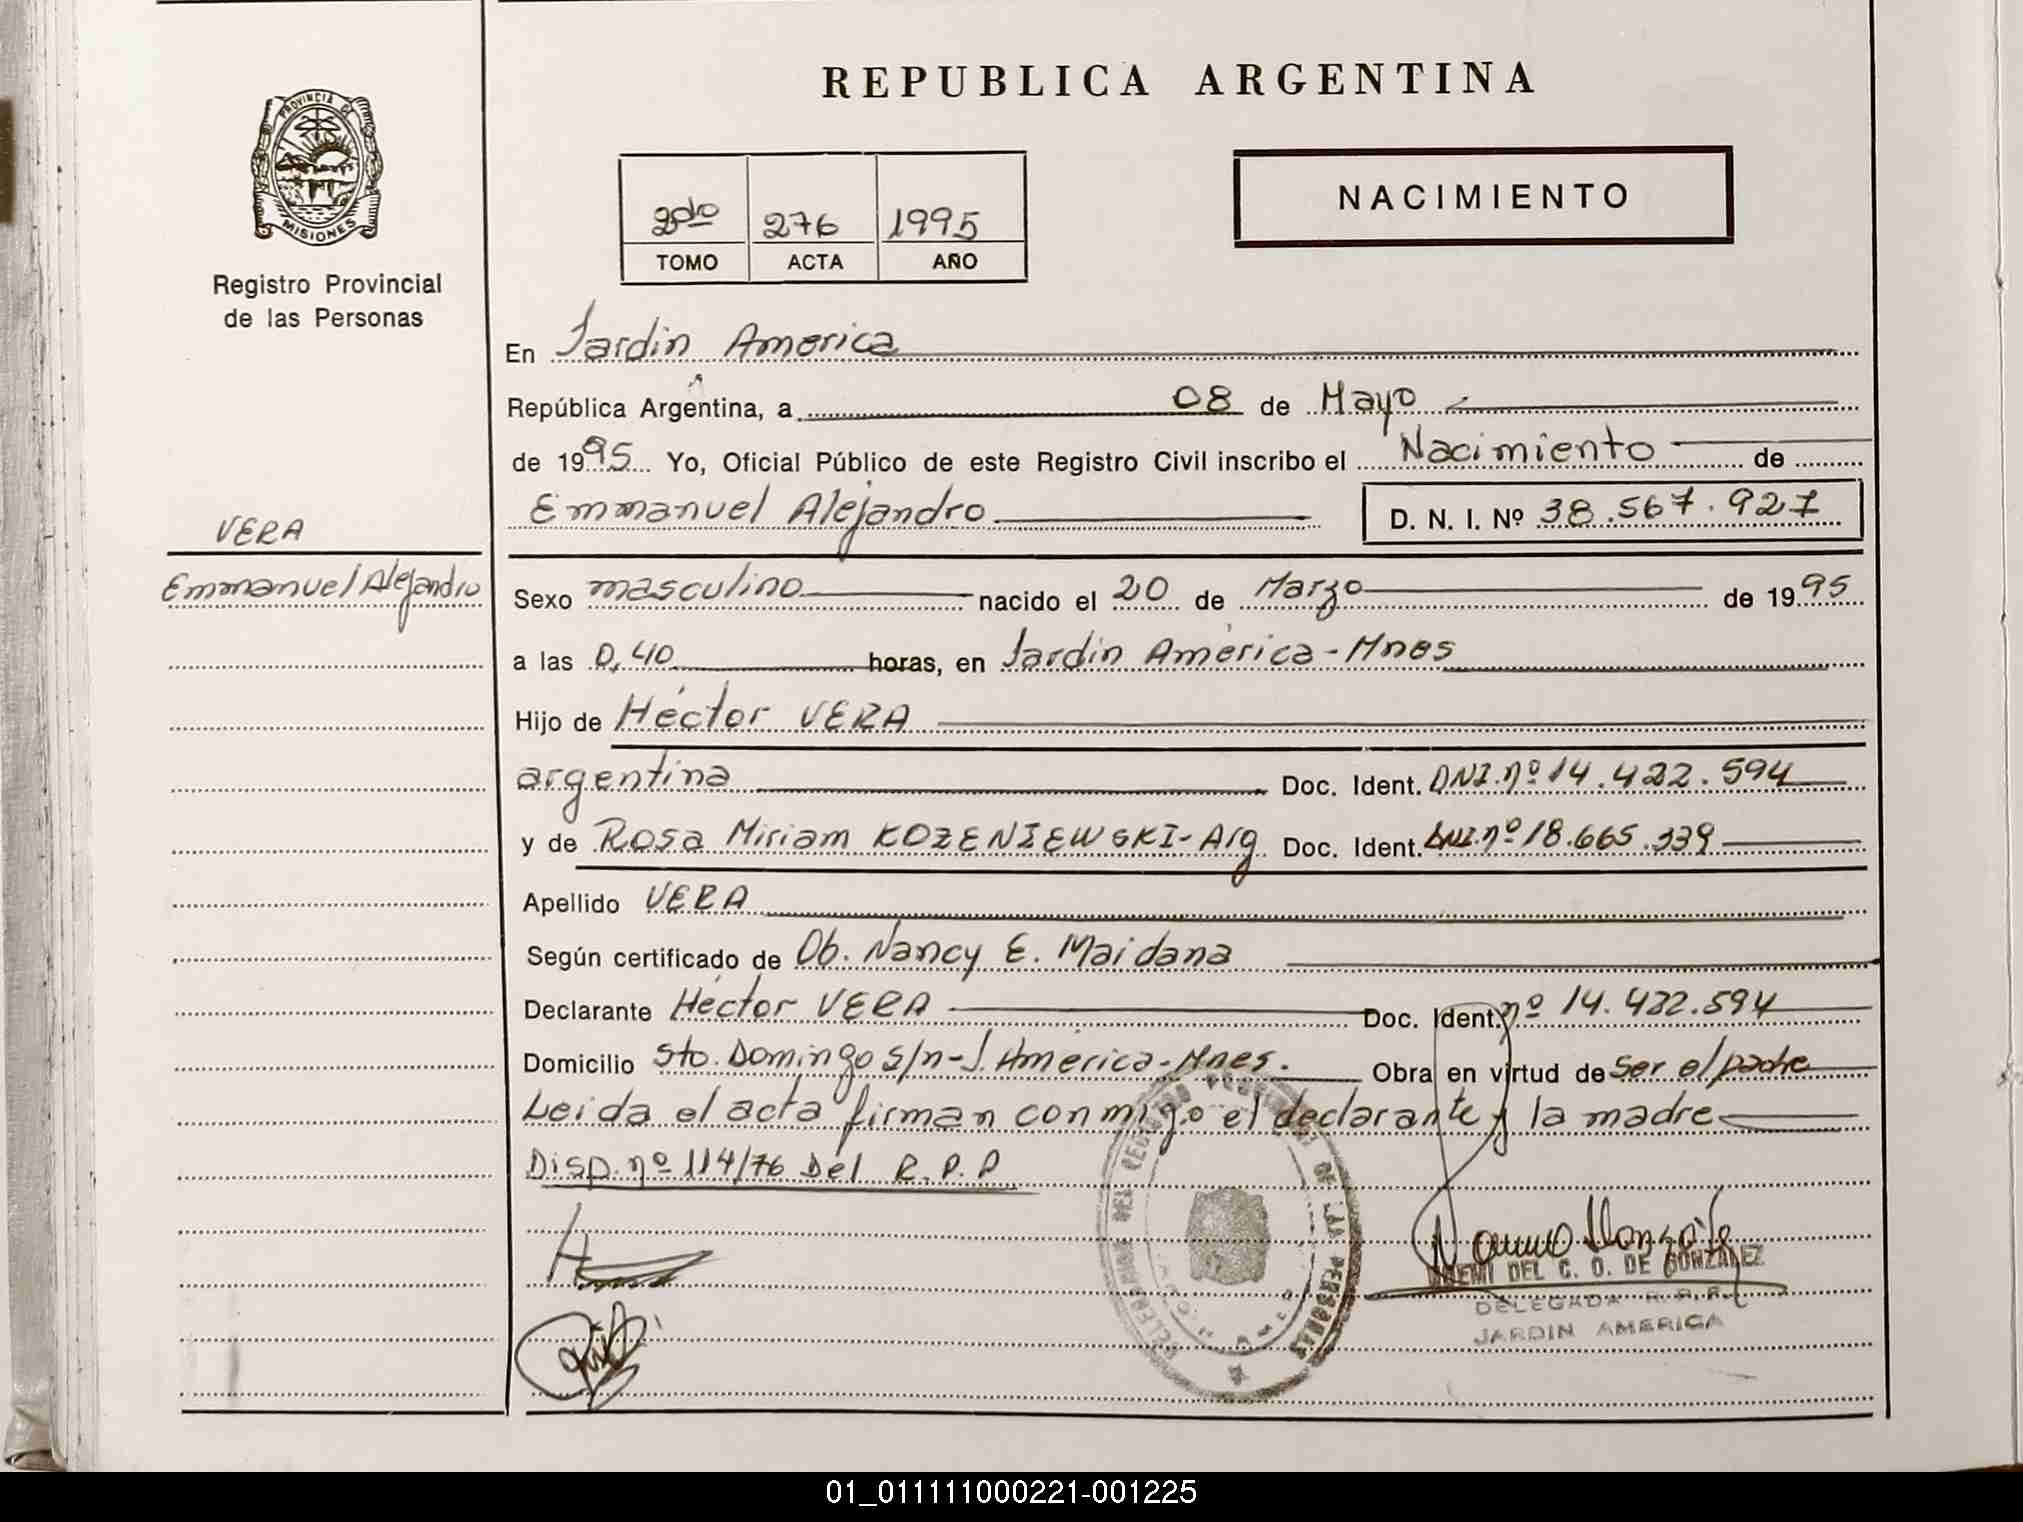 REPUBLICA ARGENTINA
PROVINCIA DE
MISIONES
Registro Provincial
de las Personas
2do 276 1995
TOMO ACTA AÑO
NACIMIENTO
En Jardin America
República Argentina, a 08 de Mayo
de 1995 Yo, Oficial Público de este Registro Civil inscribo el Nacimiento de
Emmanuel Alejandro D. N. I. Nº 38.567.927
VERA
Emmanuel Alejandro
Sexo masculino nacido el 20 de Marzo de 1995
a las 0,40 horas, en Jardin América - Mnes
Hijo de Héctor VERA
argentina Doc. Ident. DNI.nº 14.422.594
y de Rosa Miriam KOZENIEWSKI - Arg Doc. Ident. DNI.nº 18.665.339
Apellido VERA
Según certificado de Ob. Nancy E. Maidana
Declarante Héctor VERA Doc. Ident. nº 14.422.594
Domicilio Sto. Domingo s/n - J. América - Mnes. Obra en virtud de ser el padre
Leida el acta firman conmigo el declarante y la madre
Disp. nº 114/76 Del R.P.P
DEL REGISTRO PROVINCIAL DE LAS PERSONAS
NOEMI DEL C. O. DE GONZALEZ
DELEGADA R.P.P.
JARDIN AMERICA
01_011111000221-001225